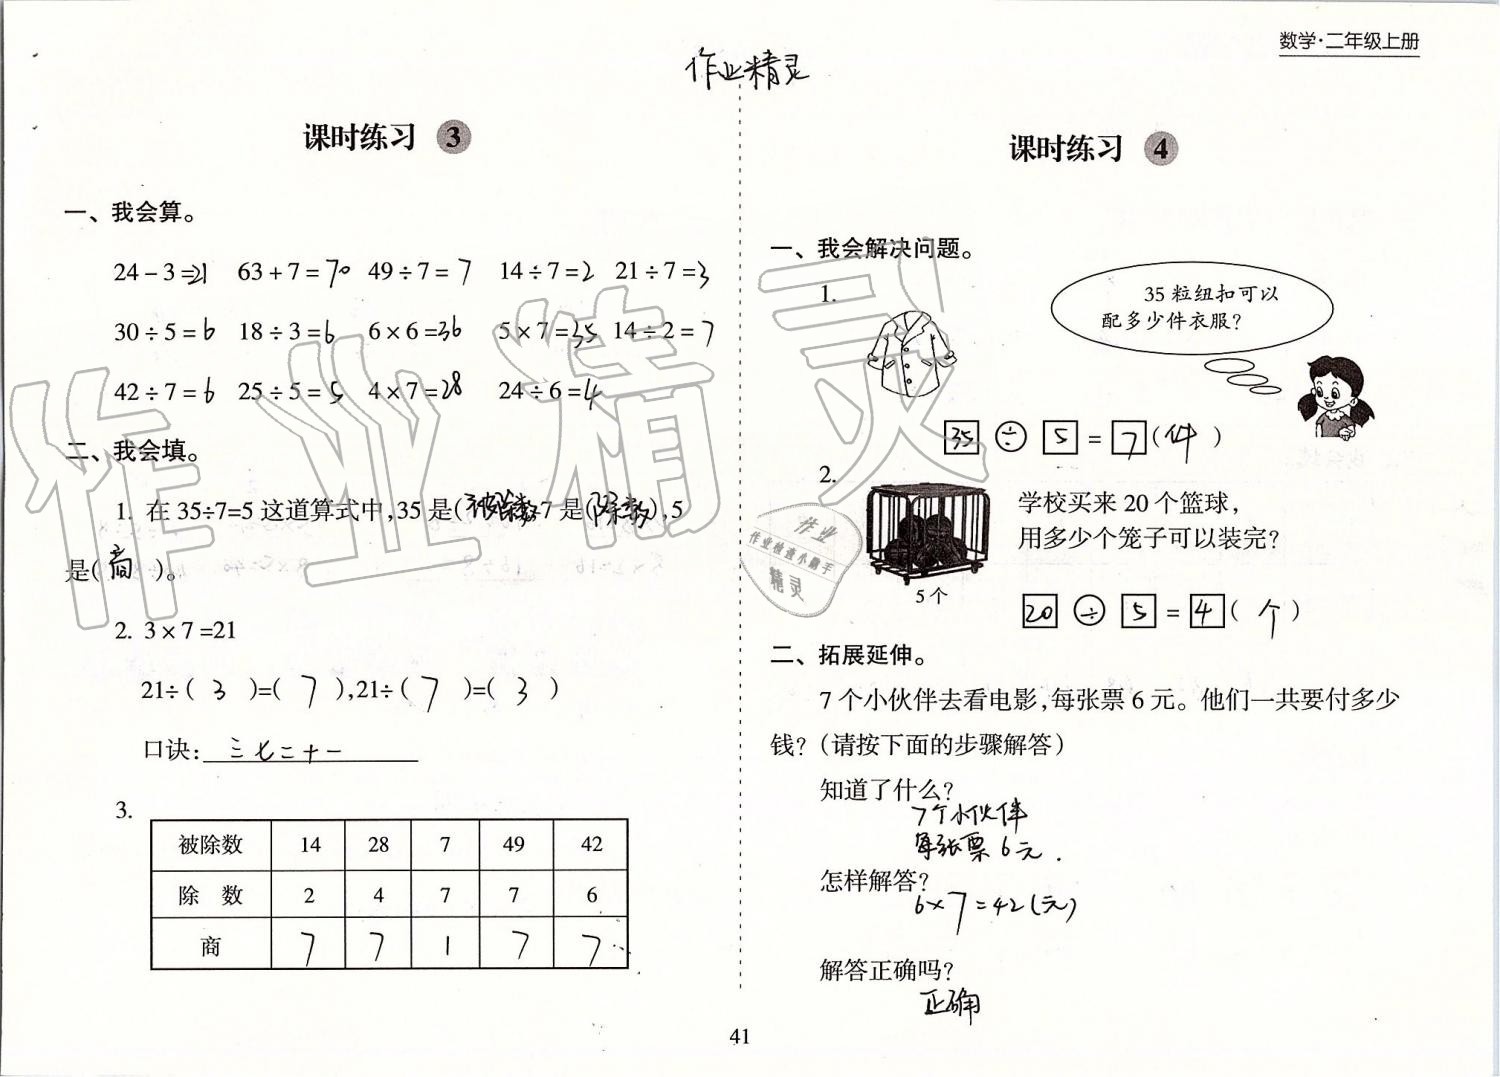 数学·二年级上册
作业精灵
课时练习 3
一、我会算。
24－3=21 63＋7=70 49÷7=7 14÷7=2 21÷7=3
30÷5=6 18÷3=6 6×6=36 5×7=35 14÷2=7
42÷7=6 25÷5=5 4×7=28 24÷6=4
二、我会填。
1. 在 35÷7=5 这道算式中,35 是(被除数)7 是(除数),5
是(商)。
2. 3×7=21
21÷(3)=(7),21÷(7)=(3)
口诀:三七二十一
3.
被除数 14 28 7 49 42
除 数 2 4 7 7 6
商 7 7 1 7 7
课时练习 4
一、我会解决问题。
1.
35 粒纽扣可以
配多少件衣服?
35÷5=7(件)
2.
学校买来 20 个篮球,
用多少个笼子可以装完?
5 个
20÷5=4(个)
二、拓展延伸。
7 个小伙伴去看电影,每张票 6 元。他们一共要付多少
钱?(请按下面的步骤解答)
知道了什么?
7个小伙伴
每张票6元.
怎样解答?
6×7=42(元)
解答正确吗?
正确
41
作业精灵
作业
作业检查小帮手
精灵